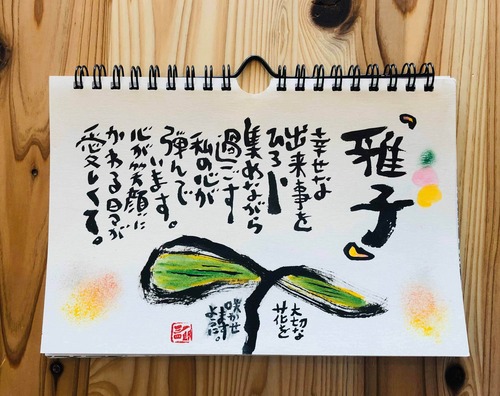 雅子
幸せな
出来事を
ひろい
集めながら
過ごす
私の心が
弾んで
います。
心が笑顔に
かわる日々が
愛しくて。
大切な
花を
咲かせ
ます
ように。